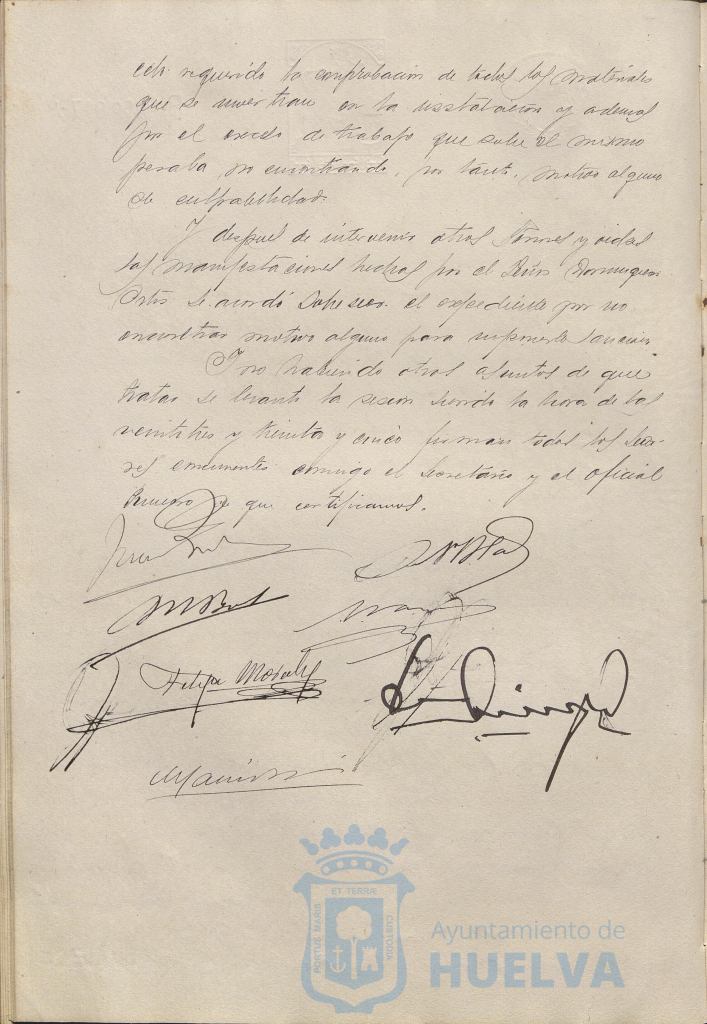 requerido la comprobación de todos los materiales
que se inviertan en la instalación y además
por el exceso de trabajo que sobre el mismo
pesaba, no encontrando, por tanto, motivo alguno
de culpabilidad.
Y después de intervenir otros Señores y oidas
las manifestaciones hechas por el Señor Dominguez
se acordó sobreseer el expediente por no
encontrar motivo alguno para imponerle sanción.
Y no habiendo otros asuntos de que
tratar se levantó la sesión siendo la hora de las
veintitres y treinta y cinco firman todos los Seño-
res concurrentes conmigo el Secretario y el oficial
primero de que certificamos.
Felipe Morales
ET TERRÆ
PORTUS MARIS
CUSTODIA
Ayuntamiento de
HUELVA